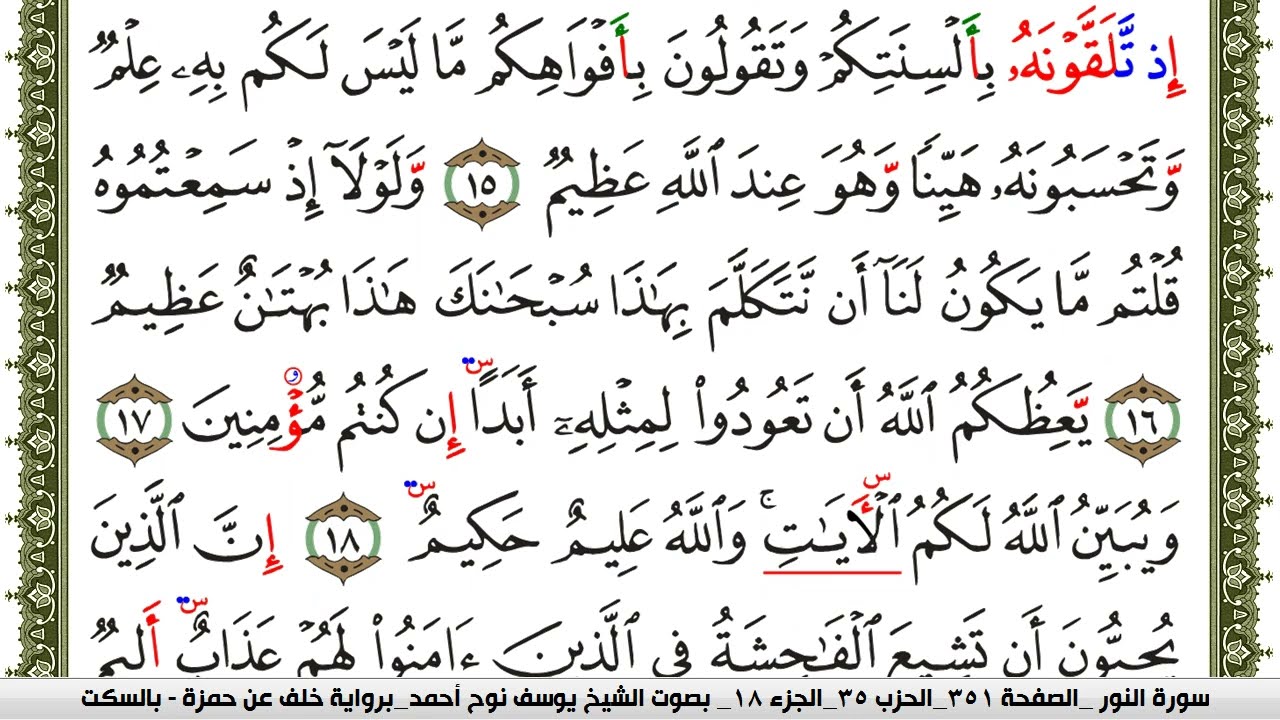 إِذ تَّلَقَّوْنَهُۥ بِأَلْسِنَتِكُمْ وَتَقُولُونَ بِأَفْوَاهِكُم مَّا لَيْسَ لَكُم بِهِۦ عِلْمٌ
وَّتَحْسَبُونَهُۥ هَيِّنًا وَّهُوَ عِندَ ٱللَّهِ عَظِيمٌ ١٥ وَّلَوْلَآ إِذْ سَمِعْتُمُوهُ
قُلْتُم مَّا يَكُونُ لَنَآ أَن نَّتَكَلَّمَ بِهَٰذَا سُبْحَٰنَكَ هَٰذَا بُهْتَٰنٌ عَظِيمٌ
١٦ يَّعِظُكُمُ ٱللَّهُ أَن تَعُودُوا۟ لِمِثْلِهِۦٓ أَبَدًا س إِن كُنتُم مُّؤْمِنِينَ ١٧
وَيُبَيِّنُ ٱللَّهُ لَكُمُ ٱلْأَيَٰتِ ۚ س وَٱللَّهُ عَلِيمٌ حَكِيمٌ س ١٨ إِنَّ ٱلَّذِينَ
يُحِبُّونَ أَن تَشِيعَ ٱلْفَٰحِشَةُ فِي ٱلَّذِينَ ءَامَنُوا۟ لَهُمْ عَذَابٌ س أَلِيمٌ
سورة النور _الصفحة ٣٥١_الحزب ٣٥_الجزء ١٨_ بصوت الشيخ يوسف نوح أحمد_برواية خلف عن حمزة - بالسكت